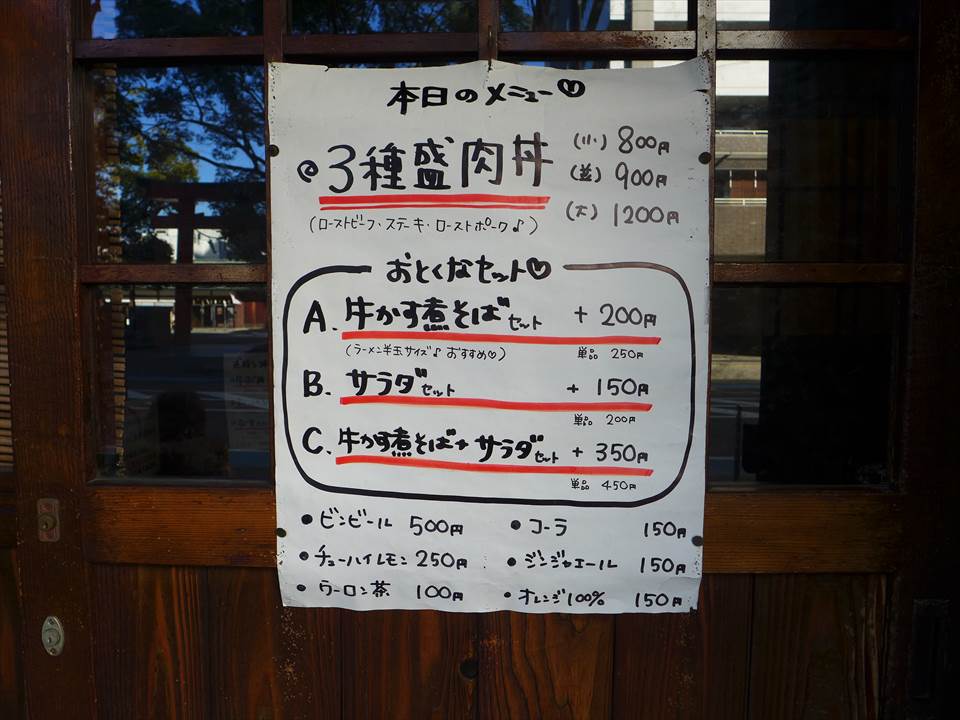 本日のメニュー♡
◎3種盛肉丼
(小) 800円
(並) 900円
(大) 1200円
(ローストビーフ・ステーキ・ローストポーク♪)
おとくなセット♡
A. 牛かす煮そばセット +200円
(ラーメン半玉サイズ♪ おすすめ♡) 単品 250円
B. サラダセット +150円
単品 200円
C. 牛かす煮そば+サラダセット +350円
単品 450円
●ビンビール 500円 ●コーラ 150円
●チューハイレモン 250円 ●ジンジャエール 150円
●ウーロン茶 100円 ●オレンジ100% 150円